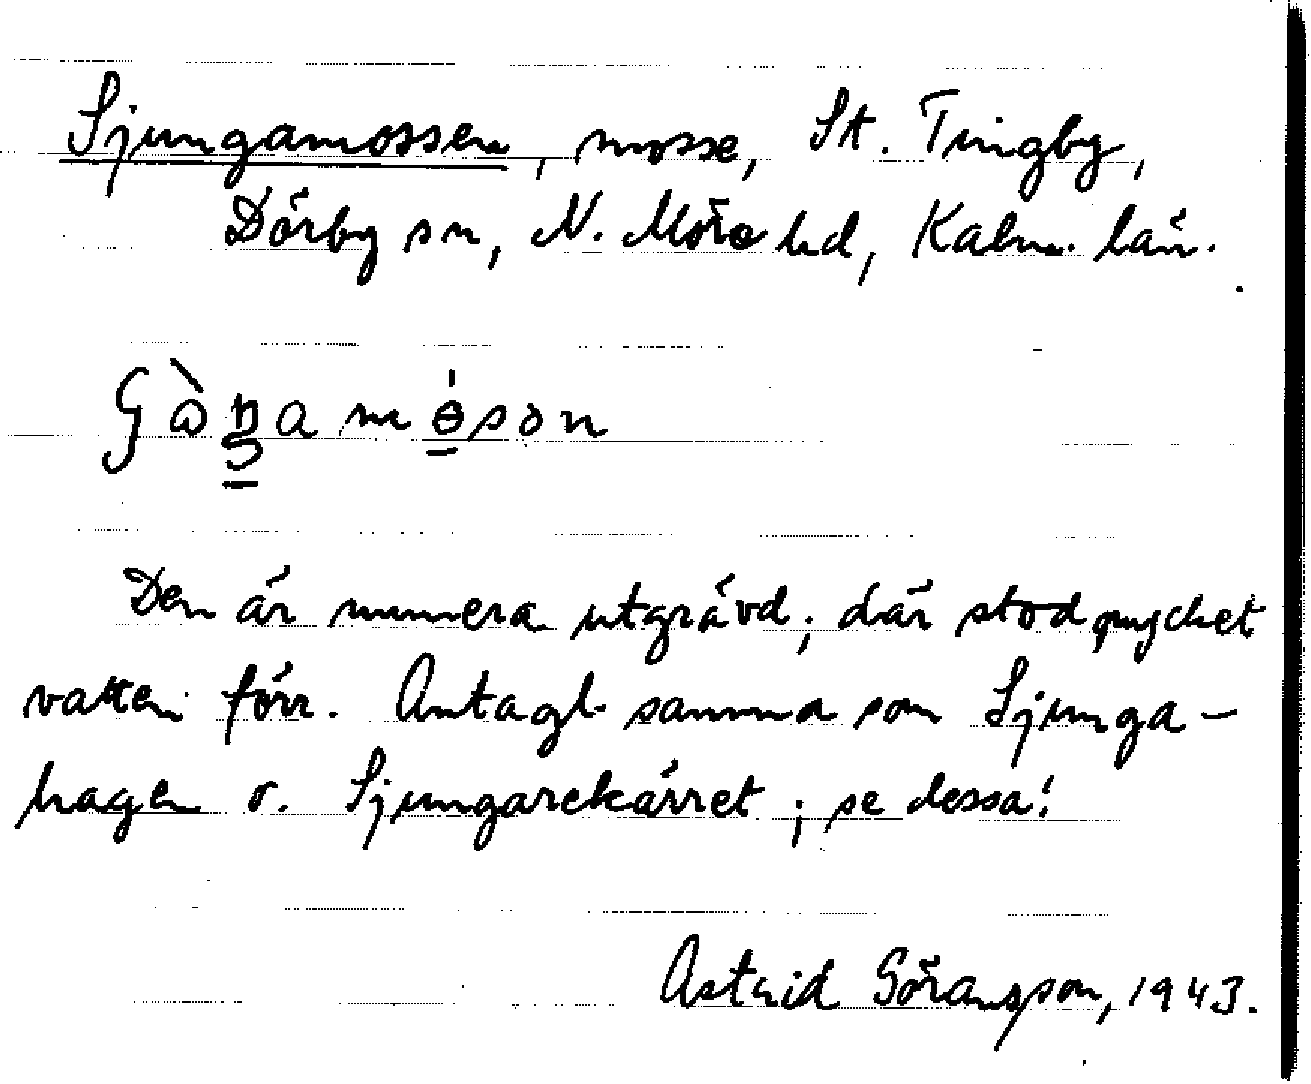 Sjungamossen, mosse, St. Tingby,
Dörby sn, N. Möre hd, Kalm. län.
Den är numera utgrävd; där stod mycket
vatten förr. Antagl. samma som Sjunga-
hagen o. Sjungarekärret; se dessa!
Astrid Göransson, 1943.